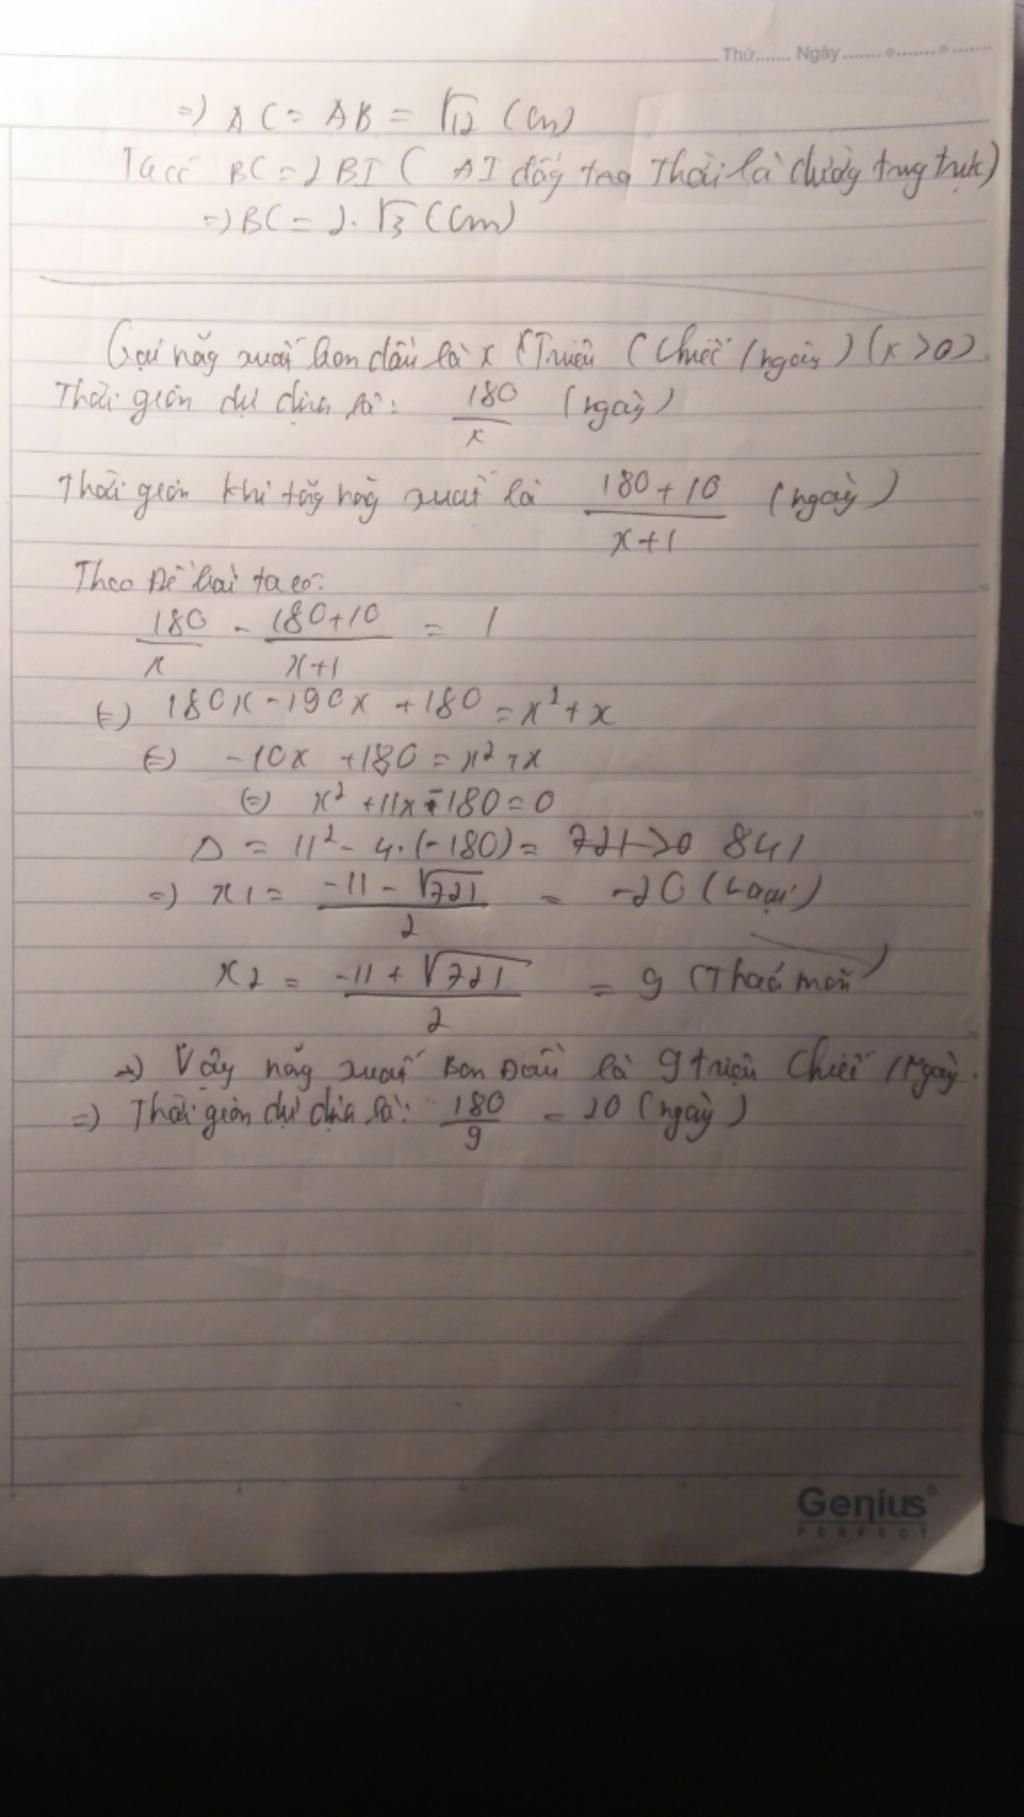 Thứ....... Ngày.......o.......o.......
=) AC = AB = √12 (cm)
Ta có BC = 2 BI ( AI đồg thời là đườg trug trực)
=) BC = 2.√3 (cm)
Gọi năg xuất ban đầu là x (Triệu (chiếc /ngày) (x > 0)
Thời gian dự định là: 180/x (ngày)
Thời gian khi tăg năg xuất là (180 + 10)/(x+1) (ngày)
Theo Đề bài ta có:
180/x - (180+10)/(x+1) = 1
(=) 180x - 190x + 180 = x² + x
(=) -10x + 180 = x² + x
(=) x² + 11x - 180 = 0
Δ = 11² - 4.(-180) = 841
=) x1 = (-11 - √721)/2 = -20 (Loại)
x2 = (-11 + √721)/2 = 9 (Thoả mãn)
=) Vậy năg xuất Ban Đầu là 9 triệu chiếc /Ngày.
=) Thời gian dự định là: 180/9 = 20 (ngày)
Genius
PERFECT